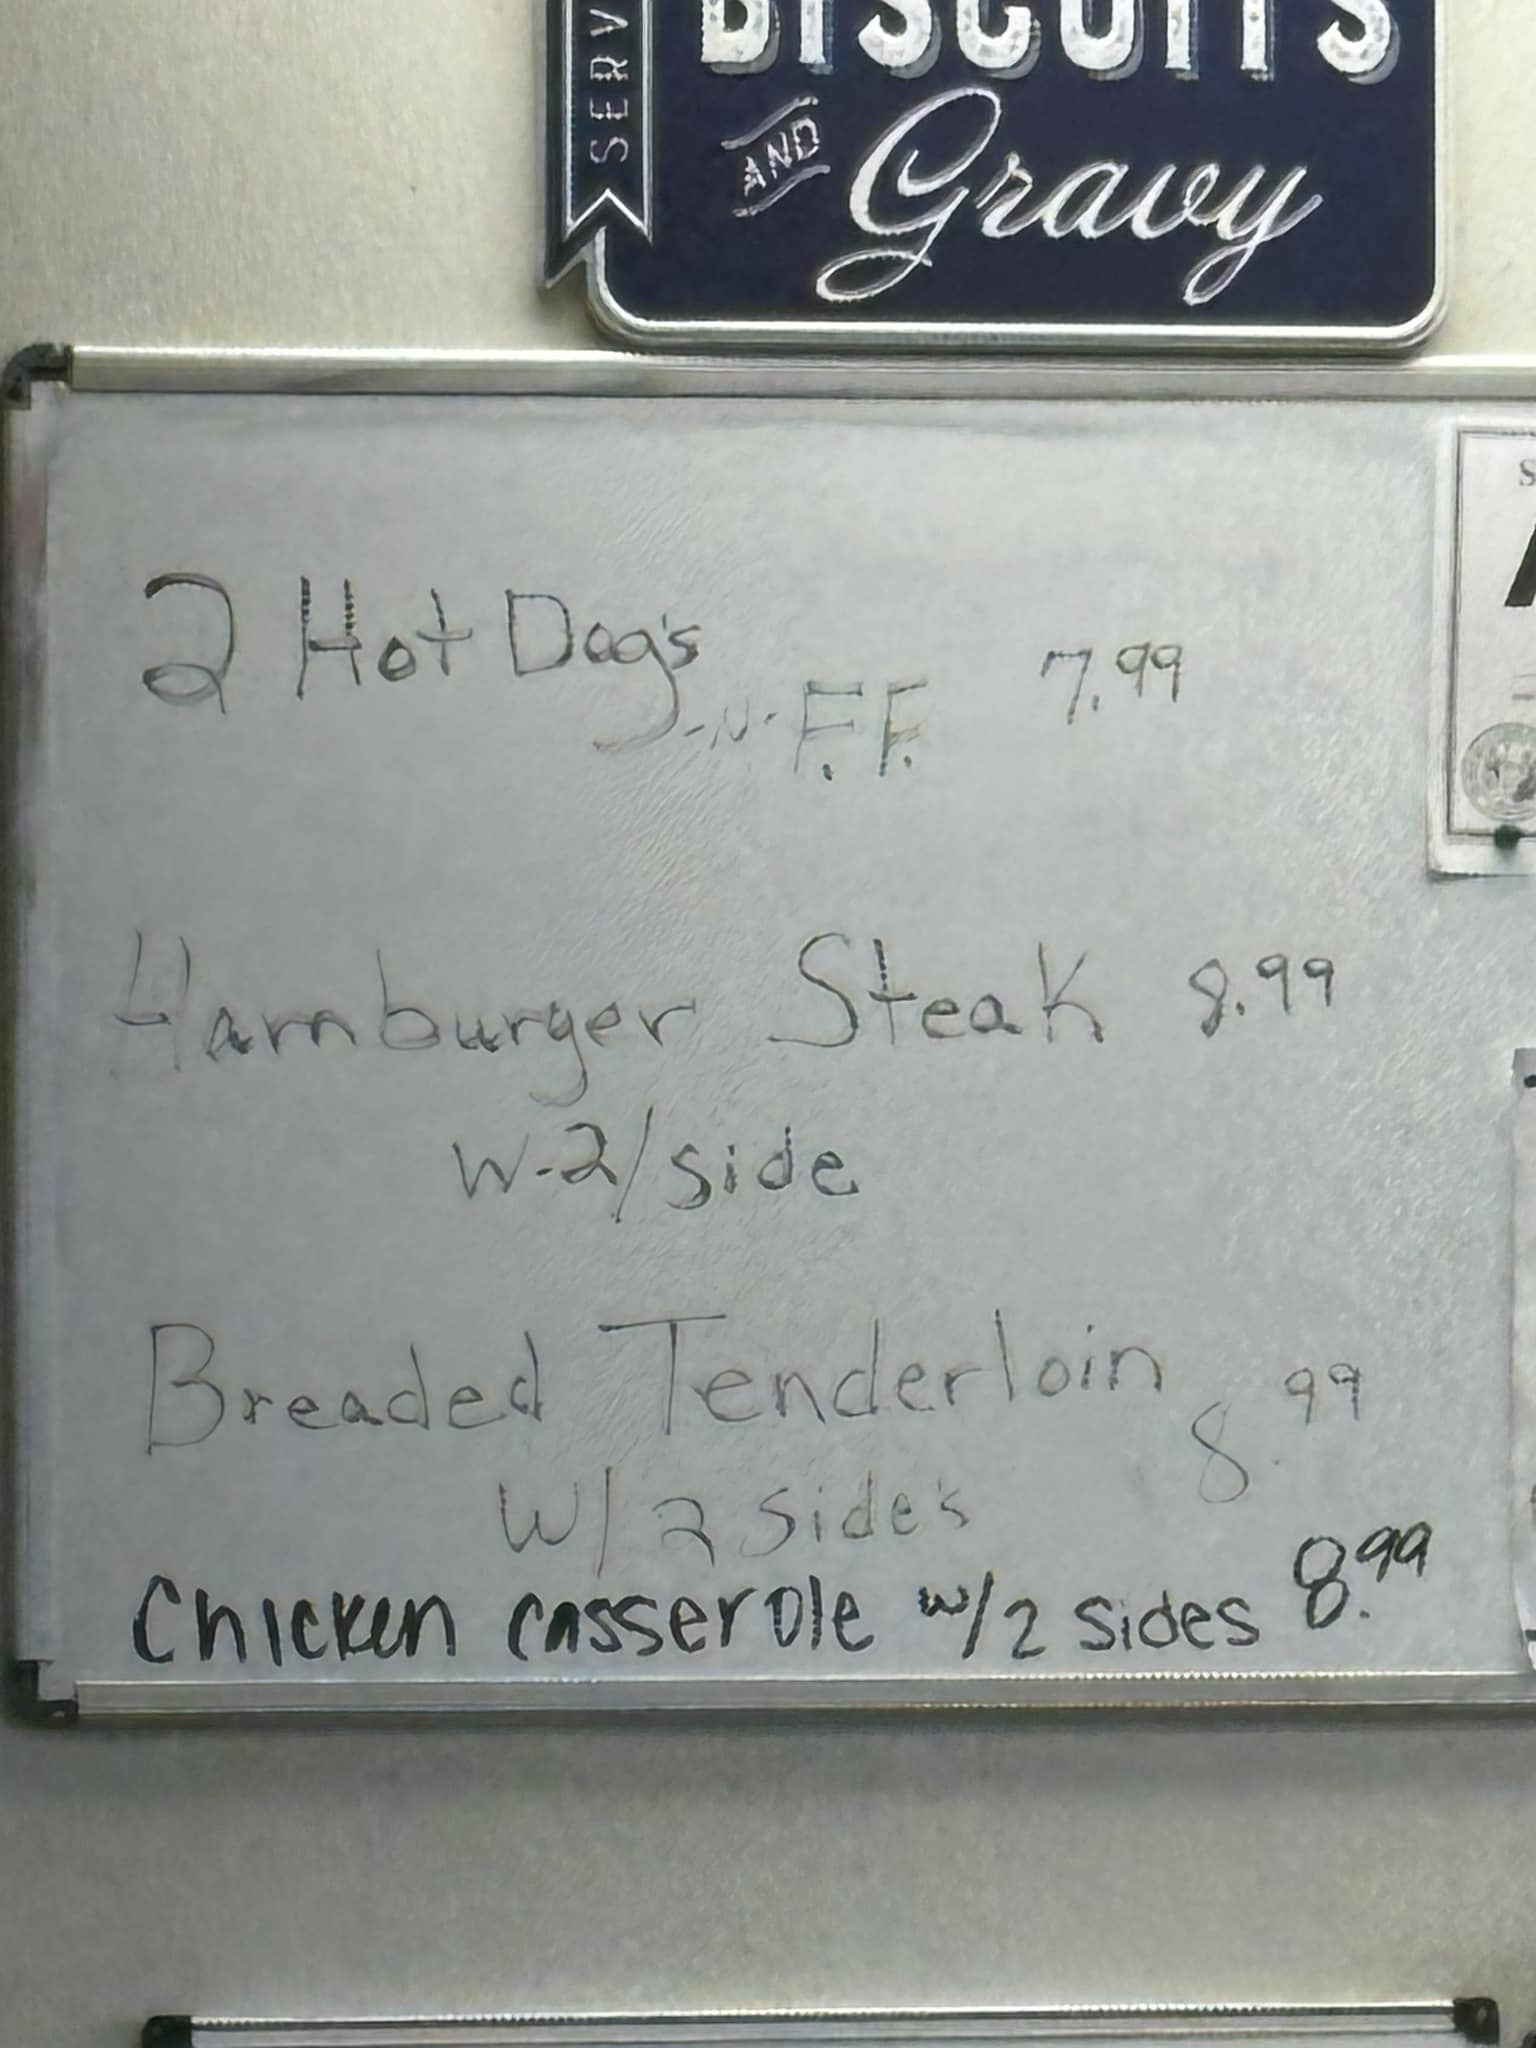 SERV
BISCUITS
AND Gravy
2 Hot Dog's -N- F.F. 7.99
Hamburger Steak 8.99
W-2/side
Breaded Tenderloin 8.99
W/2 Side's
Chicken casserole w/2 sides 8.99